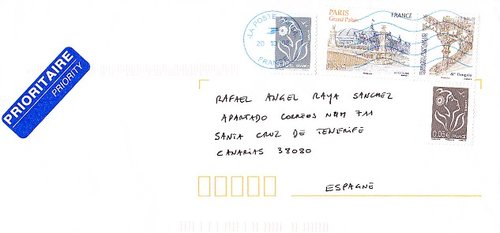 PRIORITAIRE
PRIORITY
LA POSTE
20
FRANCE
PARIS
Grand Palais
FRANCE
RAFAEL ANGEL RAYA SANCHEZ
APARTADO CORREOS NUM 711
SANTA CRUZ DE TENERIFE
CANARIAS 38080
ESPAGNE